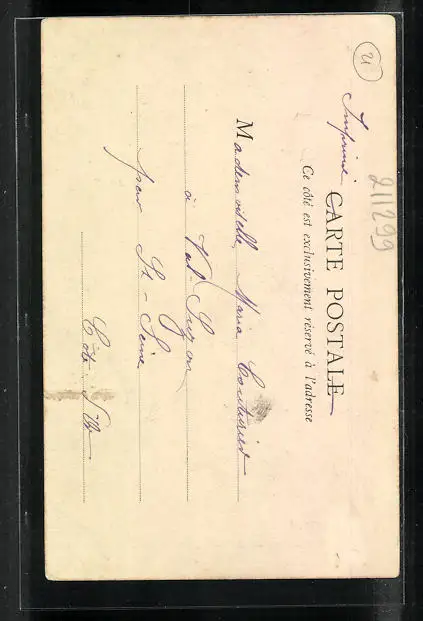 U
Imprimé
211299
CARTE POSTALE
Ce côté est exclusivement réservé à l'adresse
Mademoiselle Maria Couturier
à Val-Suzon
par St-Seine
Côte